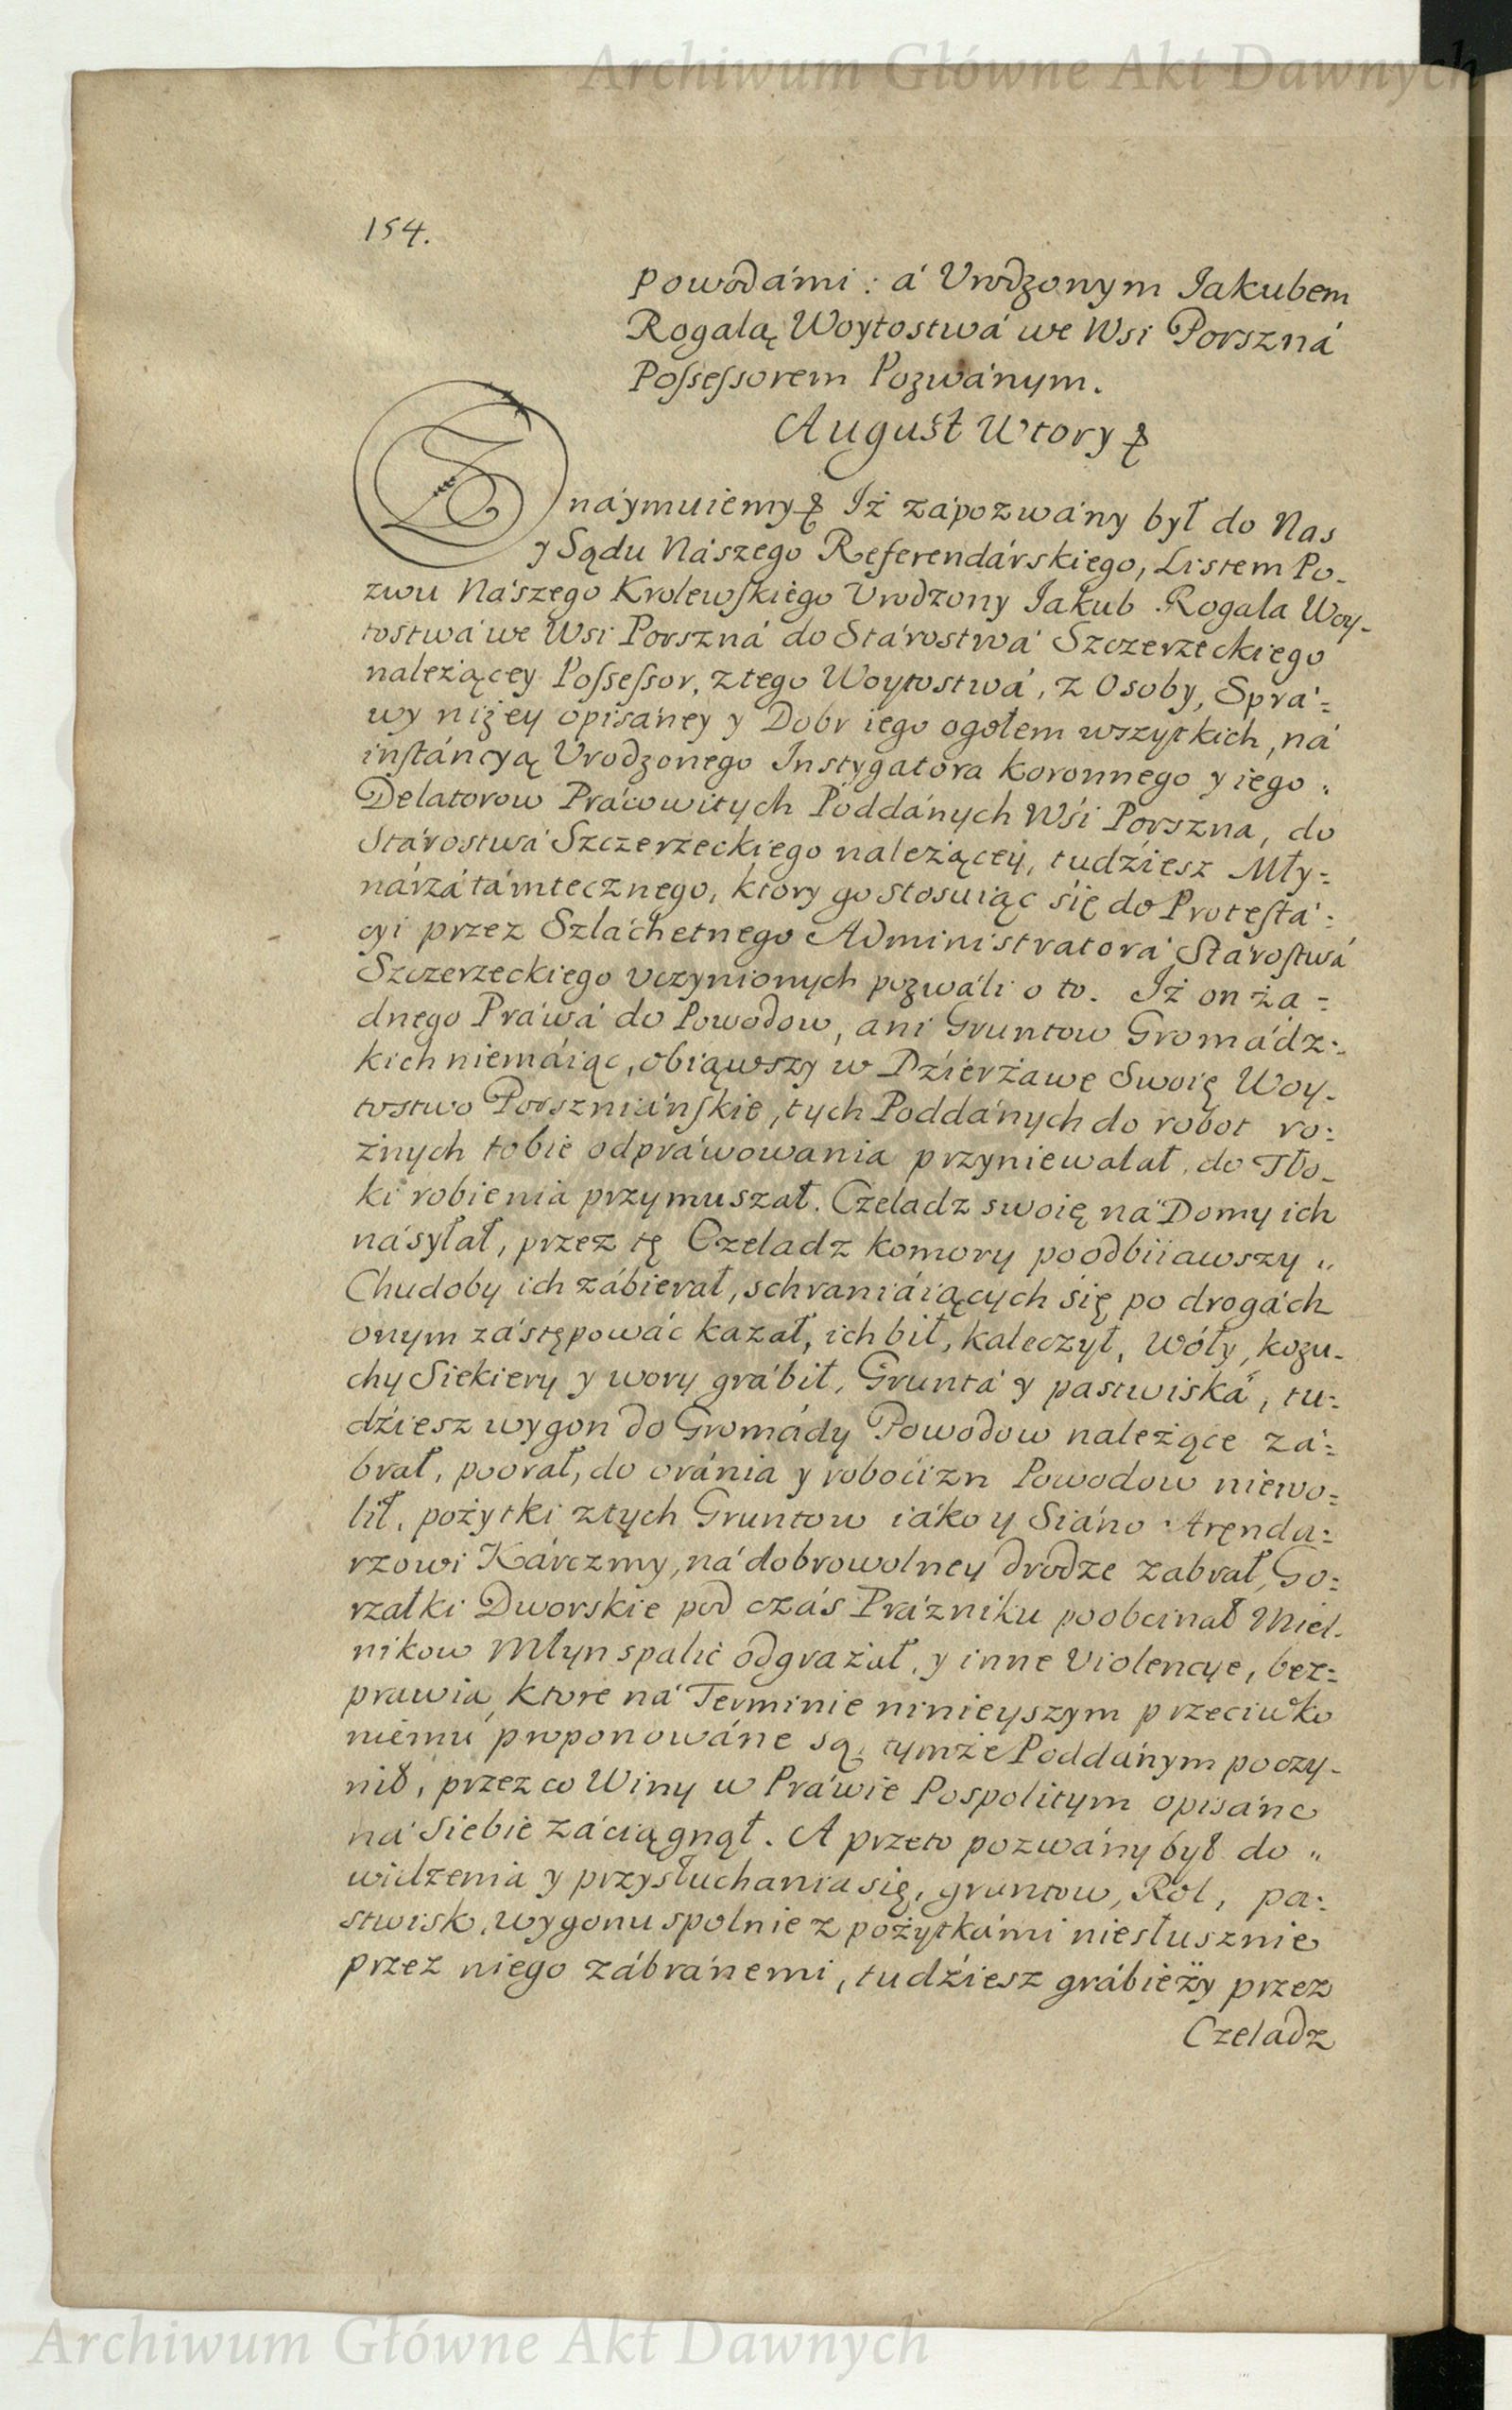 Archiwum Główne Akt Dawnych
154.
Powodámi : á Urodzonym Iakubem
Rogalą Woytostwá we Wsi Porszná
Poſseſsorem Pozwánym.
August Wtory
Znáymuiemy Iż zápozwány był do Nas
y Sądu Nászego Referendárskiego, Listem Po-
zwu Nászego Krolewſkiego Urodzony Iakub Rogala Woy-
tostwá we Wsi Porszná do Stárostwá Szczerzeckiego
należącey Poſseſsor, z tego Woytostwá, z Osoby, Sprá:
wy niżey opisáney y Dobr iego ogołem wszytkich, ná
inſtáncyą Urodzonego Instygatora Koronnego y iego
Delatorow Prácowitych Poddánych Wśi Porszna, do
Stárostwá Szczerzeckiego należącey, tudźiesz Mły:
nárzá támtecznego, ktory go stosuiąc się do Proteſtá:
cyi przez Szláchetnego Administratorá Stároſtwá
Szczerzeckiego uczynionych pozwáli o to. Iż on ża:
dnego Práwá do Powodow, ani Gruntow Gromádz:
kich niemáiąc, obiąwszy w Dźierżawę Swoię Woy-
tostwo Porszniánſkie, tych Poddánych do robot ro:
żnych tobie odpráwowania przyniewalał, do Tło-
ki robienia przymuszał. Czeladz swoię ná Domy ich
násyłał, przez tę Czeladz komory poodbiiawszy
Chudoby ich zábierał, schraniáiących się po drogách
onym zástępowáć kazał, ich bił, kaleczył, Woły, kożu-
chy Siekiery y wory grábił, Gruntá y pastwiská, tu:
dźiesz wygon do Gromády Powodow należące zá:
brał, poorał, do oránia y roboćizn Powodow niewo:
lił, pożytki z tych Gruntow iáko y Siáno Aręnda:
rzowi Kárczmy, ná dobrowolney drodze zabrał, Go:
rzałki Dworskie pod czás Prázniku poobcinał Miel-
nikow Młyn spalić odgrażał, y inne Violencye, bez:
prawia, ktore ná Terminie ninieyszym przeciwko
niemu proponowáne są, tymże Poddánym poczy-
nił, przez co Winy w Práwie Pospolitym opisáne
ná siebie záciągnął. A przeto pozwány był do
widzenia y przysłuchania się, gruntow, Rol, pa:
stwisk, wygonu spolnie z pożytkámi niesłusznie
przez niego zábránemi, tudźiesz grábieży przez
Czeladz
Archiwum Główne Akt Dawnych